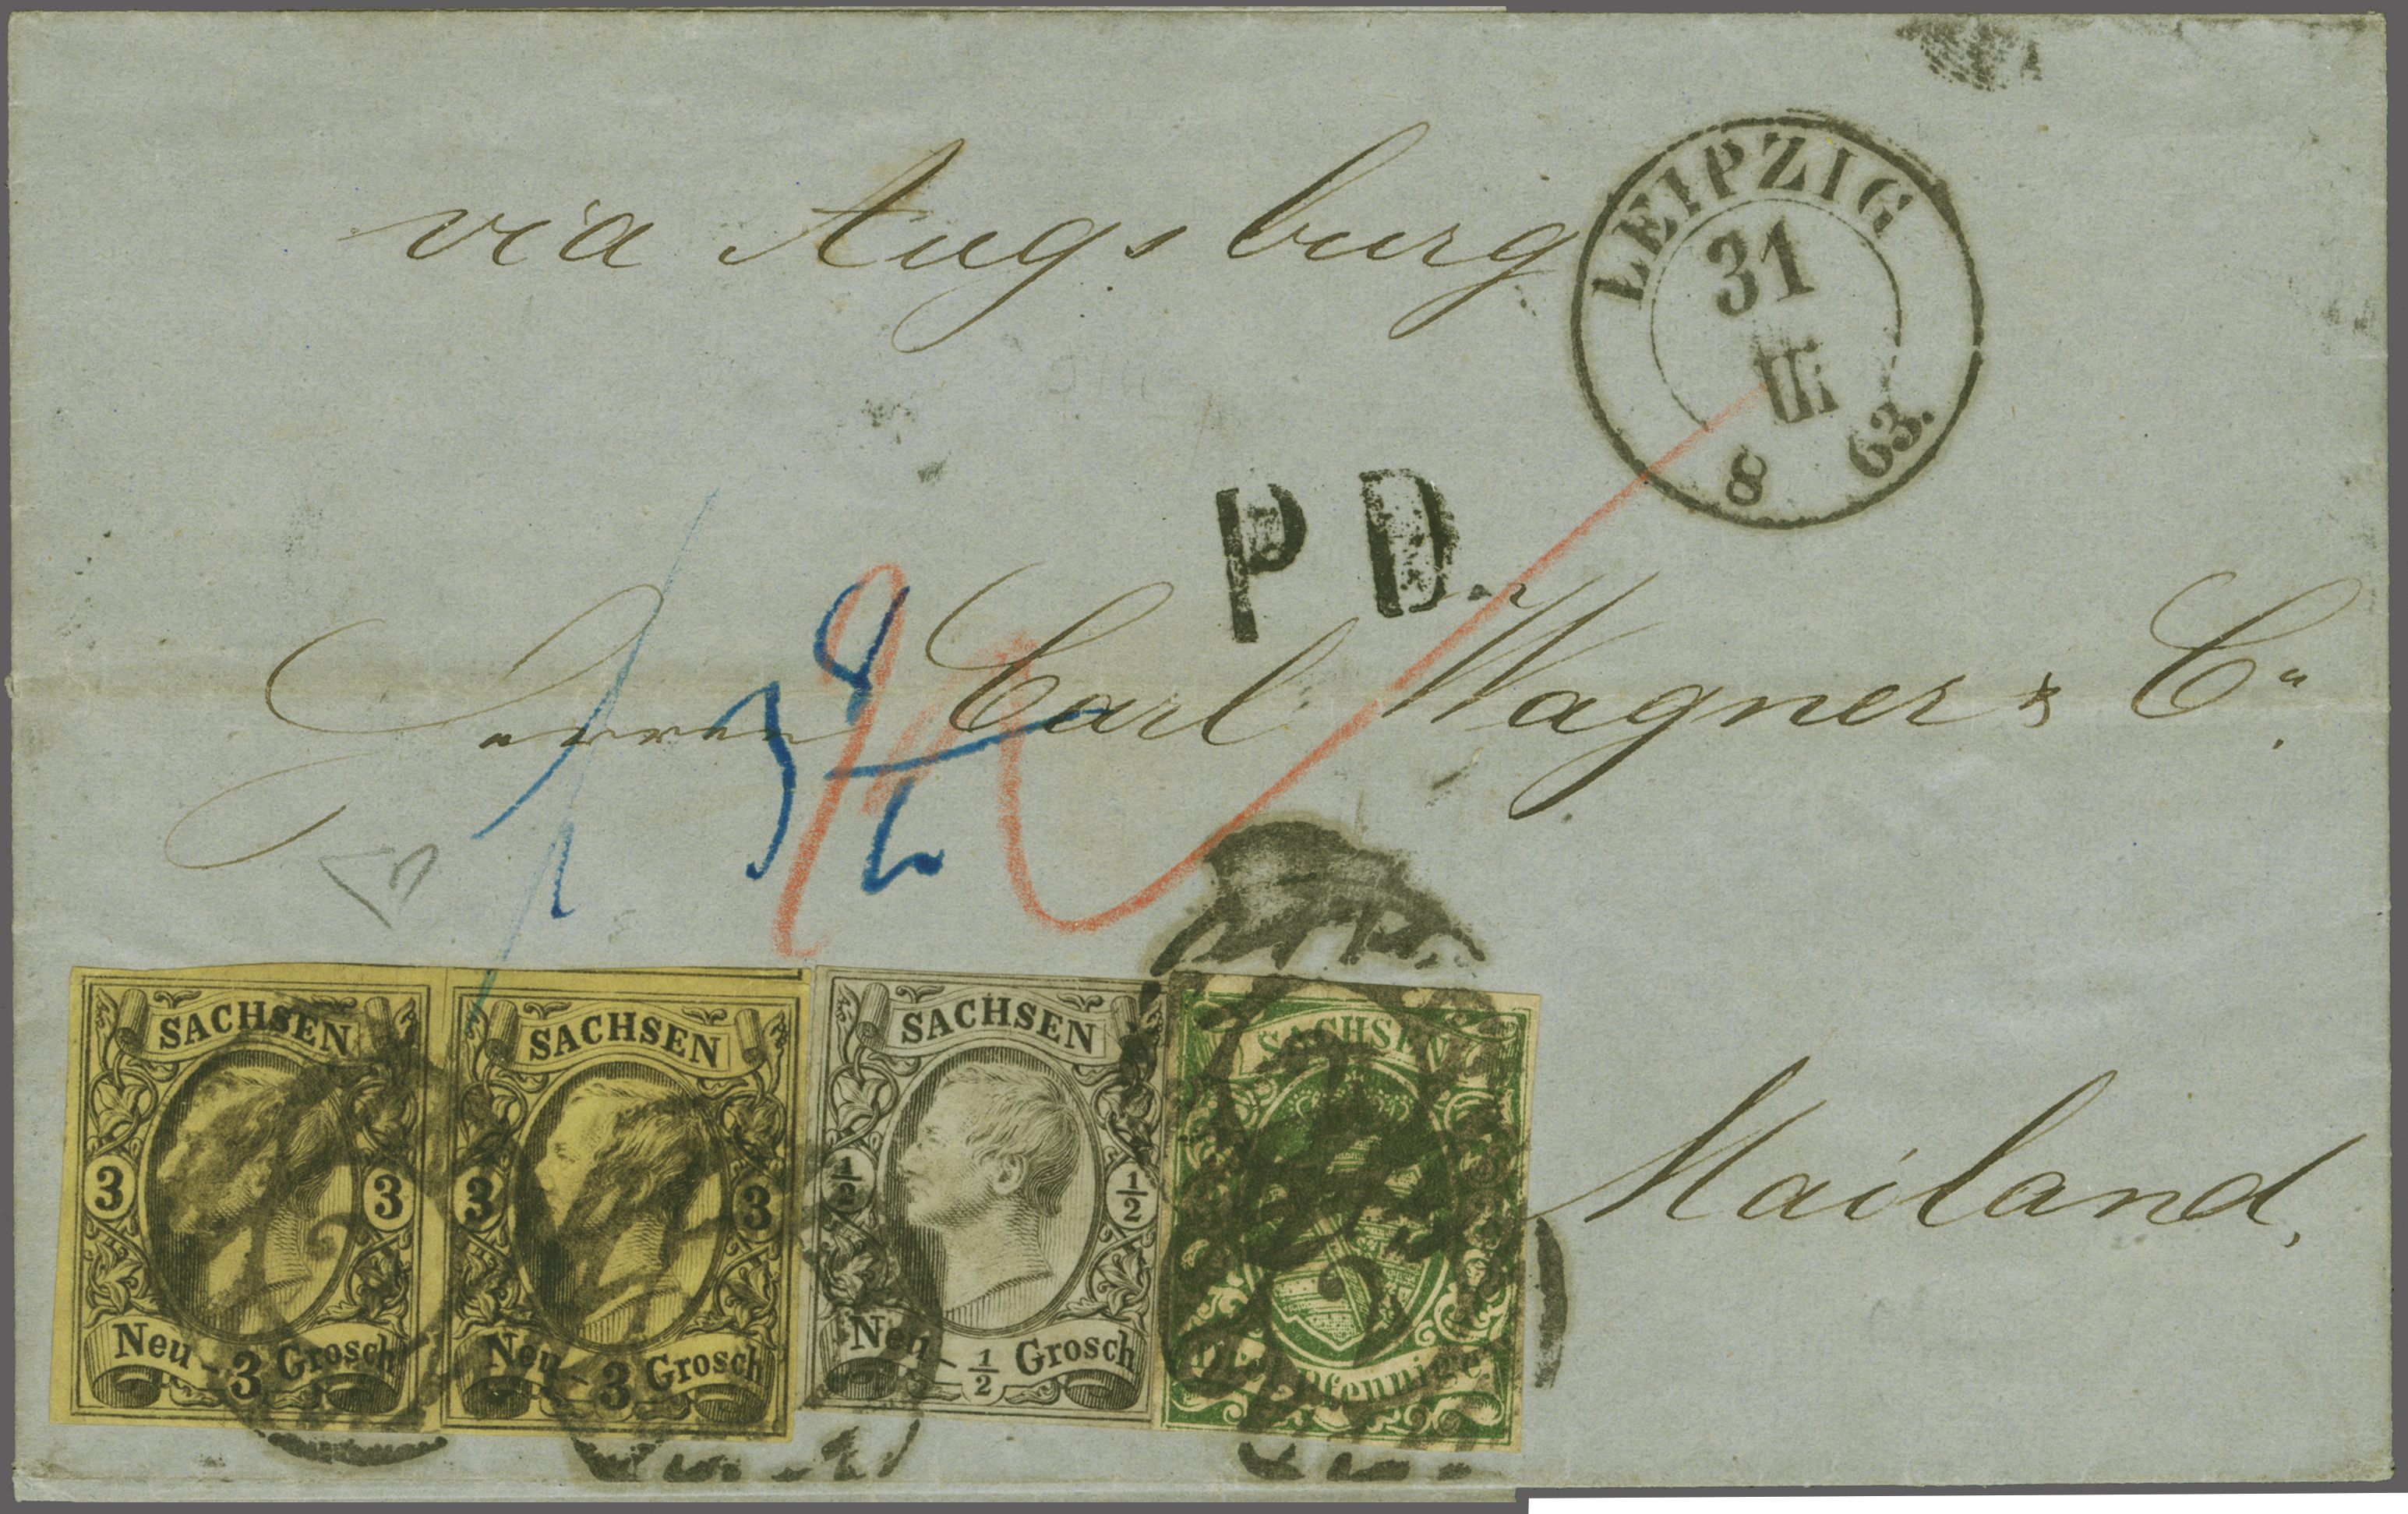 via Augsburg
LEIPZIG
31
III
8 63.
P D.
Herren Carl Wagner & Co.
SACHSEN
3 3
Neu-3 Grosch
SACHSEN
3 3
Neu-3 Grosch
SACHSEN
1/2 1/2
Neu-1/2 Grosch
SACHSEN
Pfennige
Mailand.